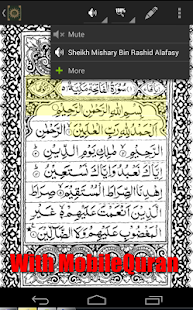 100%
Mute
Sheikh Mishary Bin Rashid Alafasy
More
سُورَةُ الْفَاتِحَةِ
بِسْمِ اللَّهِ الرَّحْمَٰنِ الرَّحِيمِ
الْحَمْدُ لِلَّهِ رَبِّ الْعَالَمِينَ الرَّحْمَٰنِ
الرَّحِيمِ مَالِكِ يَوْمِ الدِّينِ
إِيَّاكَ نَعْبُدُ وَإِيَّاكَ نَسْتَعِينُ
اهْدِنَا الصِّرَاطَ الْمُسْتَقِيمَ
صِرَاطَ الَّذِينَ أَنْعَمْتَ عَلَيْهِمْ غَيْرِ
الْمَغْضُوبِ عَلَيْهِمْ وَلَا الضَّالِّينَ
With MobileQuran